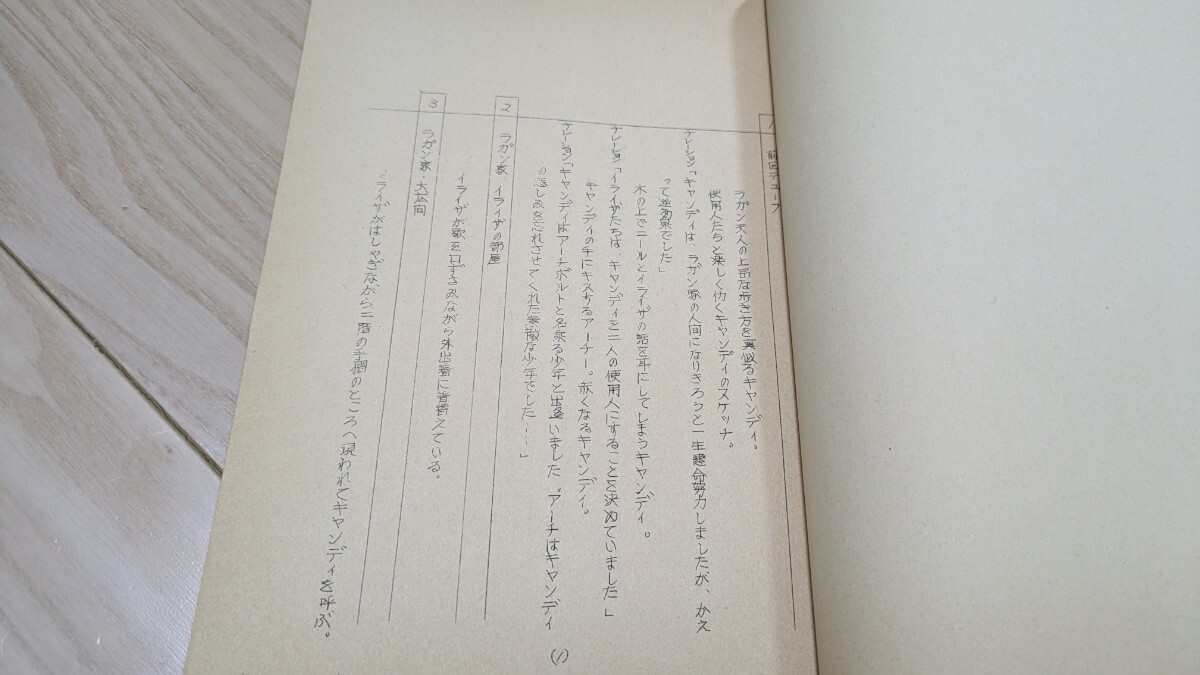 1 前回デューブ
ラガン夫人の上品な歩き方を真似るキャンディ。
使用人たちと楽しく働くキャンディのスケッチ。
ナレーション「キャンディは、ラガン家の人間になりきろうと一生懸命努力しましたが、かえ
って逆効果でした」
木の上でニールとイライザの話を耳にしてしまうキャンディ。
ナレーション「イライザたちは、キャンディを二人の使用人にすることを決めていました」
キャンディの手にキスするアーチー。赤くなるキャンディ。
ナレーション「キャンディはアーチボルトと名乗る少年と出逢いました。アーチはキャンディ
の悲しみを忘れさせてくれた素敵な少年でした……」
2 ラガン家、イライザの部屋
イライザが歌を口ずさみながら外出着に着替えている。
3 ラガン家・大広間
イライザがはしゃぎながら二階の手摺のところへ現われてキャンディを呼ぶ。
(1)